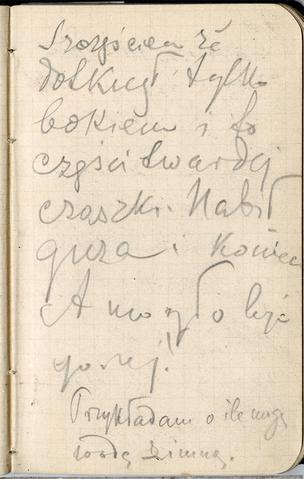 Szczęściem że
dotknął tylko
bokiem i to
części twardej
czaszki. Nabił
guza i koniec
A mogło być
gorzej!
Przykładam o ile mogę
wodę zimną.